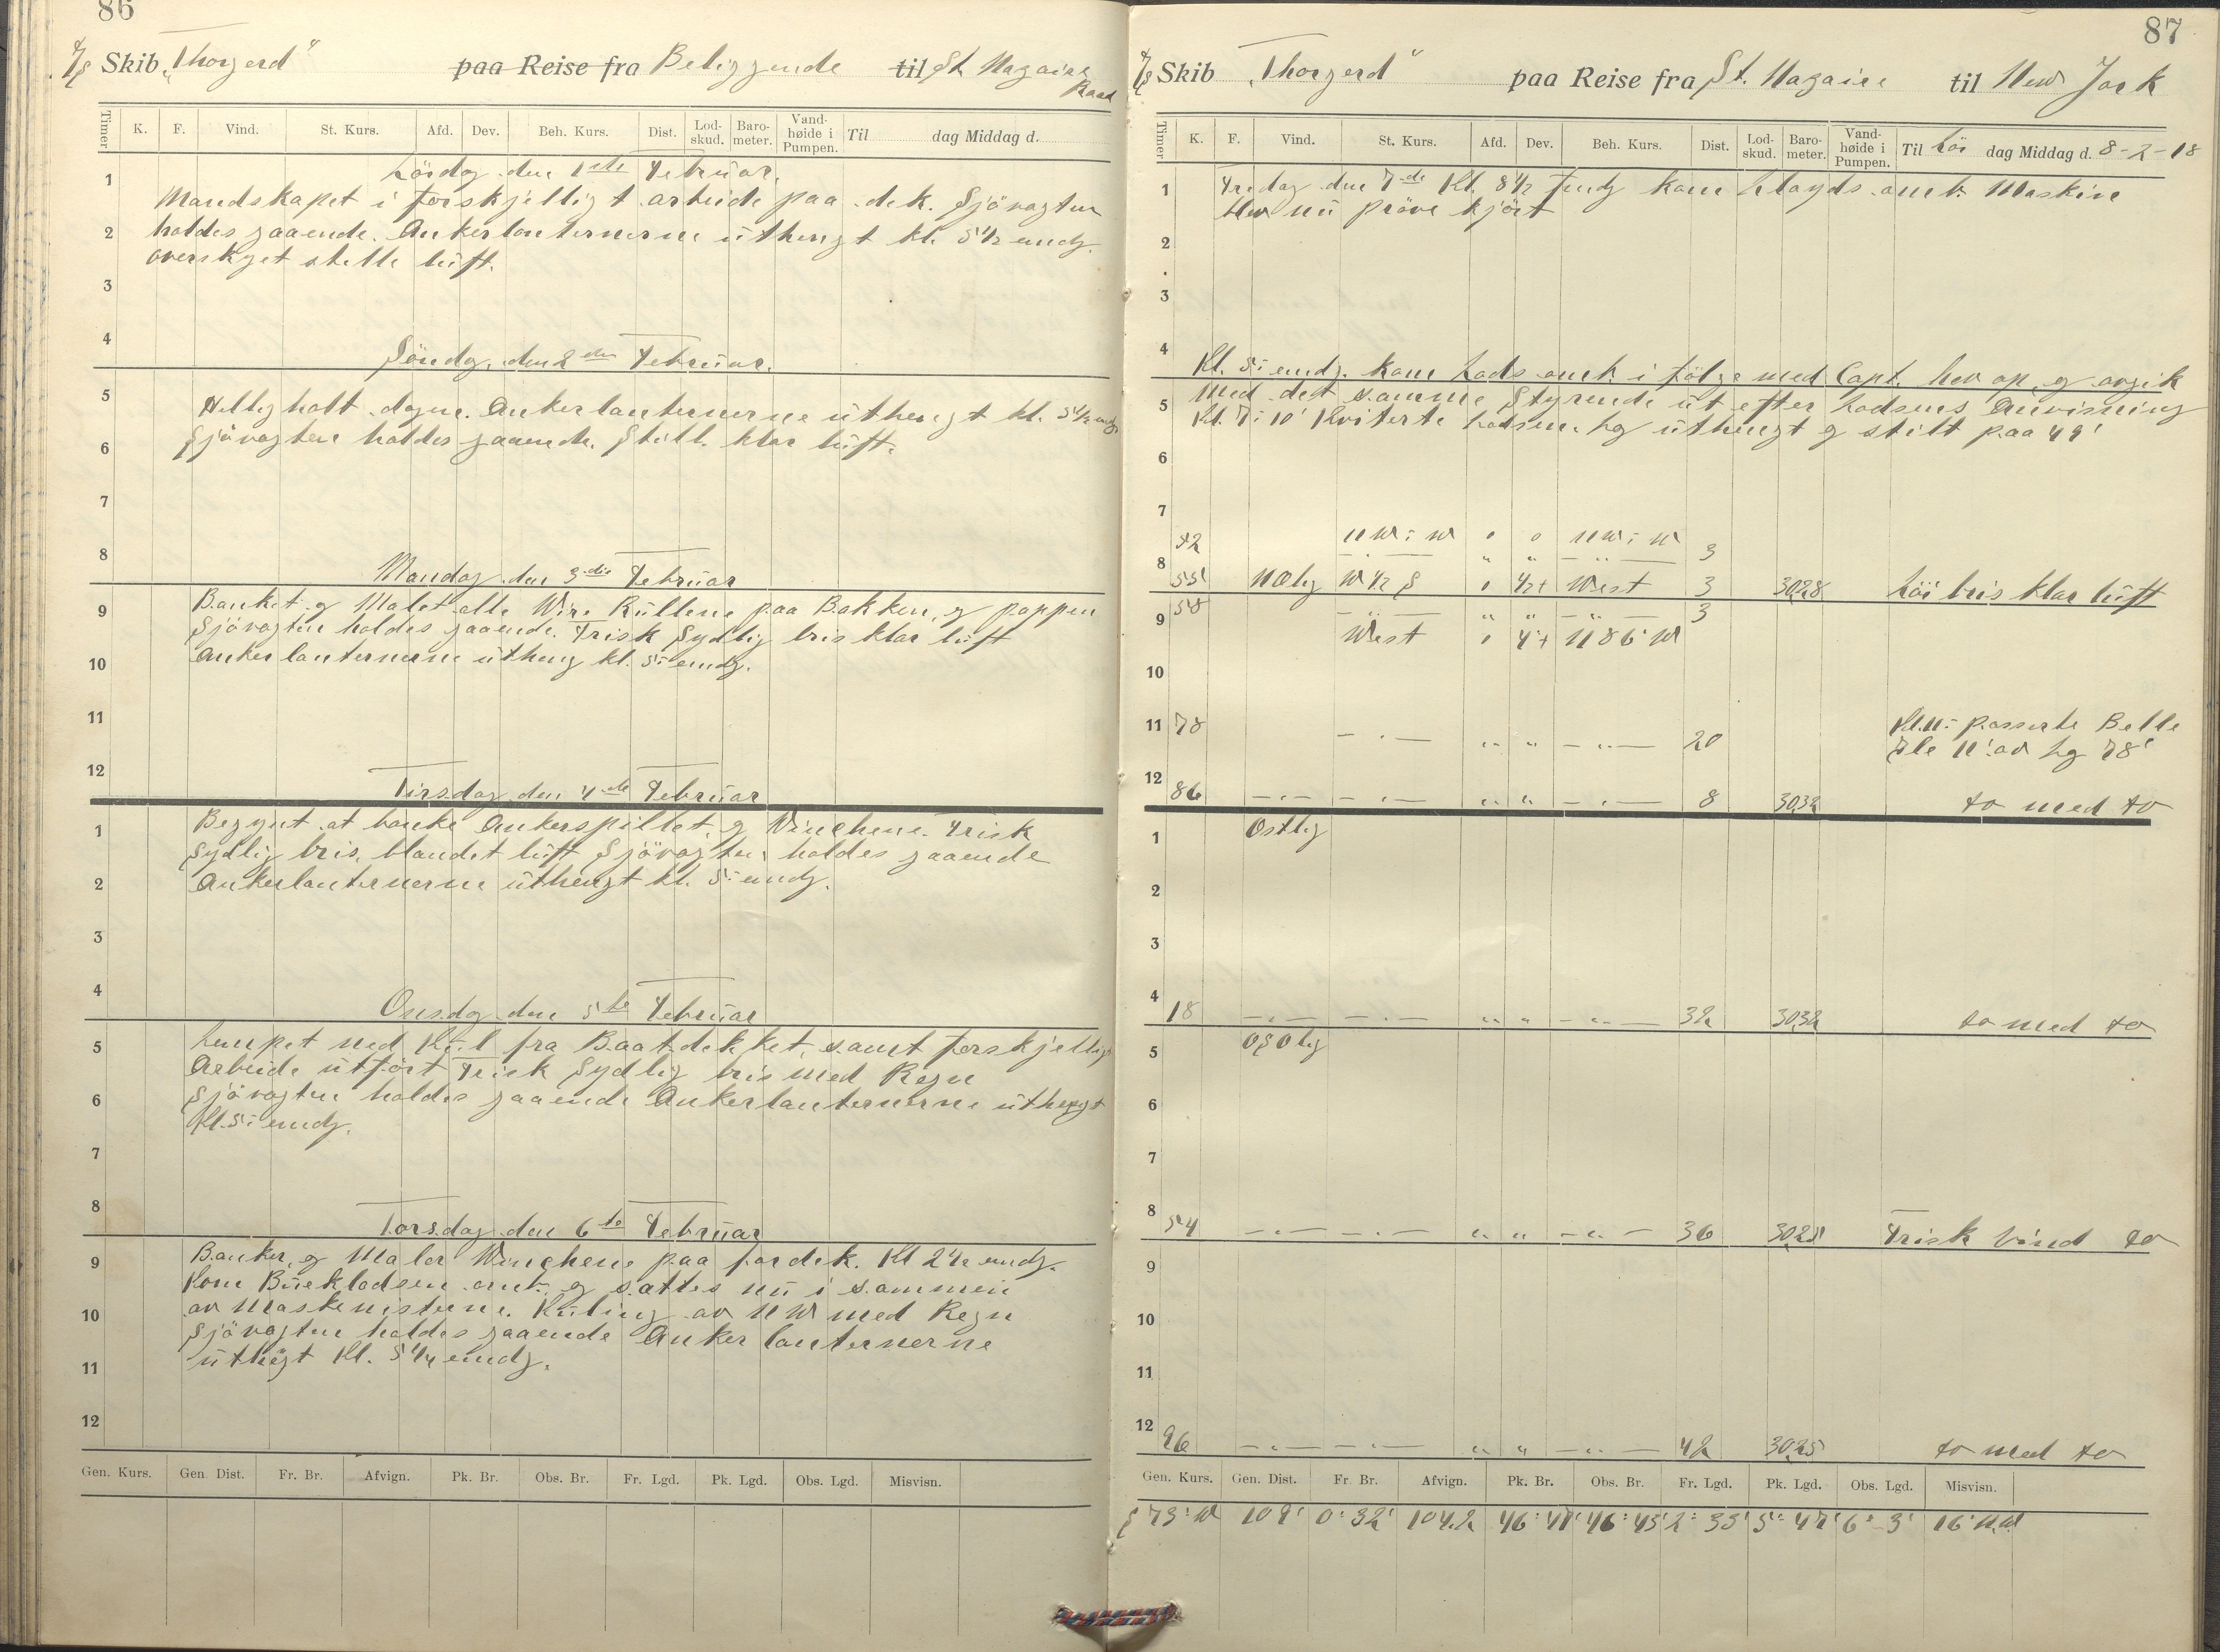 86
S/S Skib „Thorgerd“ paa Reise fra Beliggende til St Nazaire
Raad
Timer K. F. Vind. St. Kurs. Afd. Dev. Beh. Kurs. Dist. Lod-skud. Baro-meter. Vand-høide i Pumpen. Til dag Middag d.
Lördag den 1ste Februar.
1
Mandskapet i forskjelligt arbeide paa dek. Sjövagten
2 holdes gaaende. Ankerlanternerne uthengt kl. 5 1/2 emdg.
overskyet stille luft.
3
4
Söndag den 2den Februar.
5
Hellig holt dagen. Ankerlanternerne uthengt kl. 5 1/2 emdg.
Sjövagten holdes gaaende. Still. klar luft.
6
7
8
Mandag den 3die Februar
9 Banket og Malet alle Wire Rullene paa Bakken, og poppen
Sjövagten holdes gaaende. Frisk Sydlig bris klar luft
10 Anker lanternerne utheng kl. 5: emdg.
11
12
Tirsdag den 4de Februar
1 Begynt at banke Ankerspillet, og Vinchene. Frisk
Sydlig bris, blandet luft Sjövagten holdes gaaende
2 Ankerlanternerne uthengt kl. 5: emdg.
3
4
Onsdag den 5te Februar
5 Lempet ned Kul fra Baatdekket, samt forskjellig
Arbeide utfört Frisk Sydlig bris med Regn
6 Sjövagten holdes gaaende Ankerlanternerne uthengt
Kl. 5: emdg.
7
8
Torsdag den 6te Februar
9 Banker, og Maler Winchene paa fordek. Kl 2 1/2 emdg.
Kom omb. og sattes nu i sammen
10 av Maskenisterne. Kuling av NW med Regn
Sjövagten holdes gaaende Anker lanternerne
11 uthegt Kl. 5 1/4 emdg.
12
Gen. Kurs. Gen. Dist. Fr. Br. Afvign. Pk. Br. Obs. Br. Fr. Lgd. Pk. Lgd. Obs. Lgd. Misvisn.
87
S/S Skib „Thorgerd“ paa Reise fra St. Nazaire til New York
Timer K. F. Vind. St. Kurs. Afd. Dev. Beh. Kurs. Dist. Lod-skud. Baro-meter. Vand-høide i Pumpen. Til Lör dag Middag d. 8-2-18
1 Fredag den 7de Kl. 8 1/2 fmdg kom Lloyds omb. Maskin
blev nu pröve kjört
2
3
4
Kl. 5: emdg. kom Lods omb. i fölge med Capt. hev op, og avgik
5 med det samme Styrende ut efter Lodsens Anvisning
Kl. 7: 10' Kviterte Lodsen. Lg uthengt og stilt paa 49'
6
7
52 NW:W 0 0 NW:W
8 — „ — „ „ — „ — 3
55' NOlig W 1/2 S 0 1/2+ West 3 30,28 Löi bris klar luft
58 — „ — „ „ — „ — 3
9 West 0 4°+ N 86° W
10
11 78 — „ — „ „ — „ — 20 Kl. 11: passerte Belle
Ile 11' av Lg 78'
12
86 — „ — — „ — „ „ — „ — 8 30,32 to med to
1 Ostlig
2
3
4
18 — „ — — „ — „ „ — „ — 32 30,32 to med to
5 OSOlig
6
7
8
54 — „ — — „ — „ „ — „ — 36 30,28 Frisk Vind to
9
10
11
12
96 — „ — — „ — „ „ — „ — 42 30,25 to med to
Gen. Kurs. Gen. Dist. Fr. Br. Afvign. Pk. Br. Obs. Br. Fr. Lgd. Pk. Lgd. Obs. Lgd. Misvisn.
S 73° W 109' 0° 32' 104,2 46° 47' 46° 45' 2° 33' 5° 47' 6° 3' 16° NW